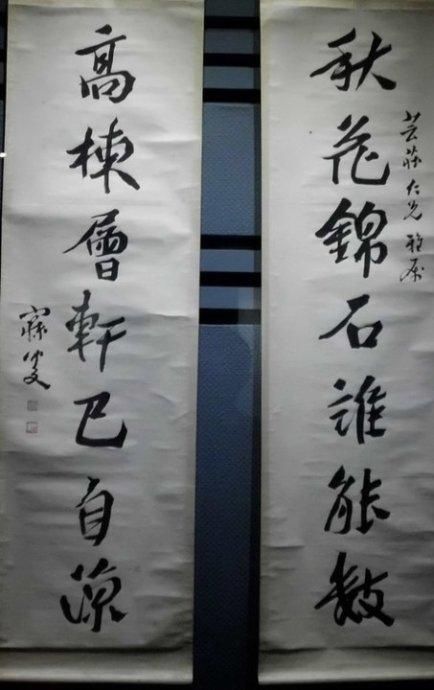 秋花錦石誰能數
芸莊仁兄雅屬
高棟層軒已自涼
寐叟